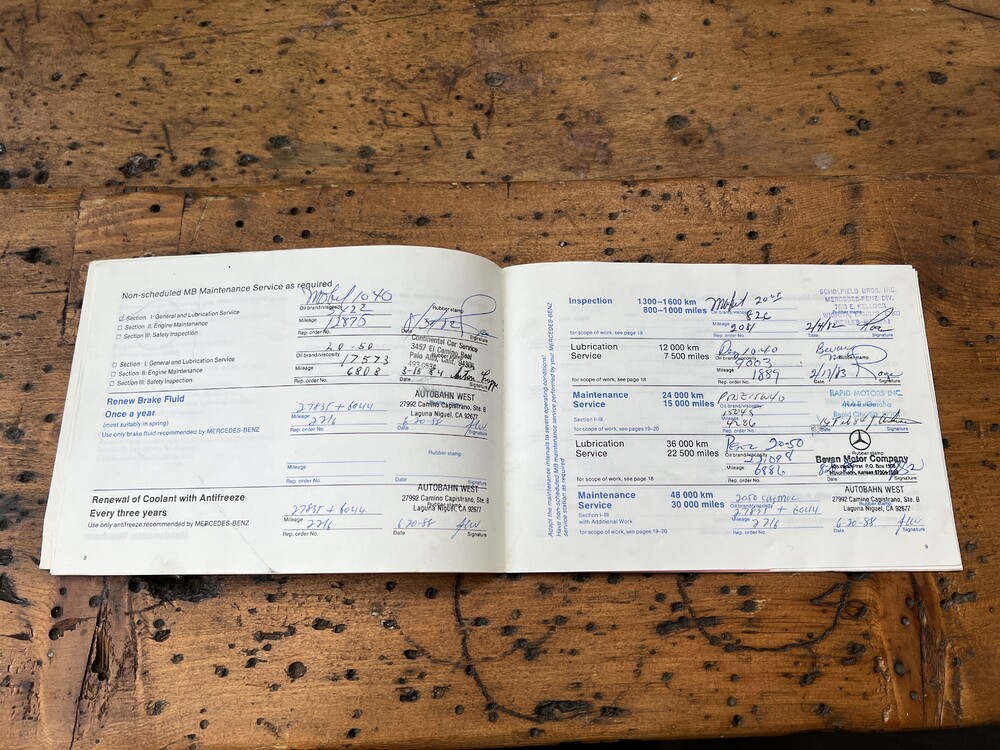 Non-scheduled MB Maintenance Service as required
Mobil 10 40
Section I: General and Lubrication Service
Section II: Engine Maintenance
Section III: Safety Inspection
Oil brand/viscosity
Mileage
Rep. order No.
Rubber stamp
Date
Signature
Continental Car Service
3457 El Camino Real
Palo Alto
Section I: General and Lubrication Service
Section II: Engine Maintenance
Section III: Safety Inspection
20-50
Oil brand/viscosity
17573
Mileage
6808
Rep. order No.
3-15 84
Date
Signature
Renew Brake Fluid
Once a year
(most suitably in spring)
Use only brake fluid recommended by MERCEDES-BENZ
27835 + 6044
Mileage
2716
Rep. order No.
AUTOBAHN WEST
27992 Camino Capistrano, Ste. B
Laguna Niguel, CA 92677
6-20-88
Date
Signature
Mileage
Rep. order No.
Rubber stamp
Date
Signature
Renewal of Coolant with Antifreeze
Every three years
Use only antifreeze recommended by MERCEDES-BENZ
27835 + 6044
Mileage
2716
Rep. order No.
AUTOBAHN WEST
27992 Camino Capistrano, Ste. B
Laguna Niguel, CA 92677
6-20-88
Date
Signature
8
Adapt the maintenance intervals to severe operating conditions!
Have non-scheduled MB maintenance service performed by your MERCEDES-BENZ
service station as required
Inspection
1300–1600 km
800–1000 miles
for scope of work, see page 18
Mobil
Oil brand/viscosity
826
Mileage
Rep. order No.
SCHOLFIELD BROS. INC.
MERCEDES-BENZ DIV.
7633 E. KELLOGG
2/4/82
Date
Signature
Lubrication
Service
12 000 km
7 500 miles
for scope of work, see page 18
10.40
Oil brand/viscosity
9003
Mileage
1889
Rep. order No.
Rubber stamp
2/17/83
Date
Signature
Maintenance
Service
24 000 km
15 000 miles
Section I–II
for scope of work, see pages 19–20
Oil brand/viscosity
15045
Mileage
Rep. order No.
RAPID MOTORS INC.
Rapid City
Date
Signature
Lubrication
Service
36 000 km
22 500 miles
for scope of work, see page 18
Penz 20-50
Oil brand/viscosity
Mileage
6886
Rep. order No.
Rubber stamp
Bevan Motor Company
P.O. Box
Hutchinson, Kansas
Date
Signature
Maintenance
Service
48 000 km
30 000 miles
Section I–III
with Additional Work
for scope of work, see pages 19–20
2050
Oil brand/viscosity
27835 + 6044
Mileage
2716
Rep. order No.
AUTOBAHN WEST
27992 Camino Capistrano, Ste. B
Rubber stamp
Laguna Niguel, CA 92677
6-20-88
Date
Signature
9